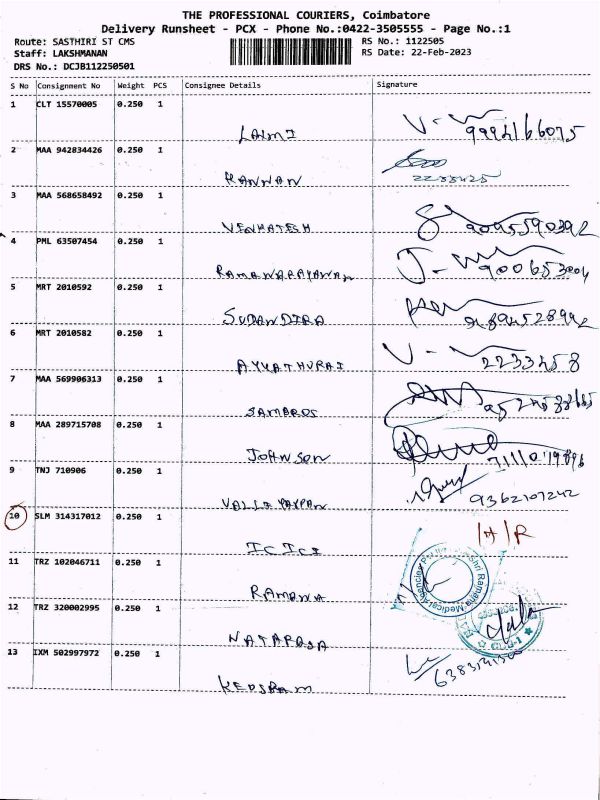 THE PROFESSIONAL COURIERS, Coimbatore
Delivery Runsheet - PCX - Phone No.:0422-3505555 - Page No.:1
Route: SASTHIRI ST CMS
RS No.: 1122505
Staff: LAKSHMANAN
RS Date: 22-Feb-2023
DRS No.: DCJB112250501
S No Consignment No Weight PCS Consignee Details Signature
1 CLT 15570005 0.250 1
LAXMI
2 MAA 942834426 0.250 1
KANNAN
3 MAA 568658492 0.250 1
VENKATESH 9095590392
4 PML 63507454 0.250 1
RAMANARAYANAN
5 MRT 2010592 0.250 1
6 MRT 2010582 0.250 1
AYYATHURAI 2233458
7 MAA 569906313 0.250 1
8 MAA 289715708 0.250 1
JOHNSON
9 TNJ 710906 0.250 1
9362107242
10 SLM 314317012 0.250 1
ICICI
11 TRZ 102046711 0.250 1
RAMANA
Shri Ramana Medical Agencies
12 TRZ 320002995 0.250 1
NATARAJA
13 IXM 502997972 0.250 1